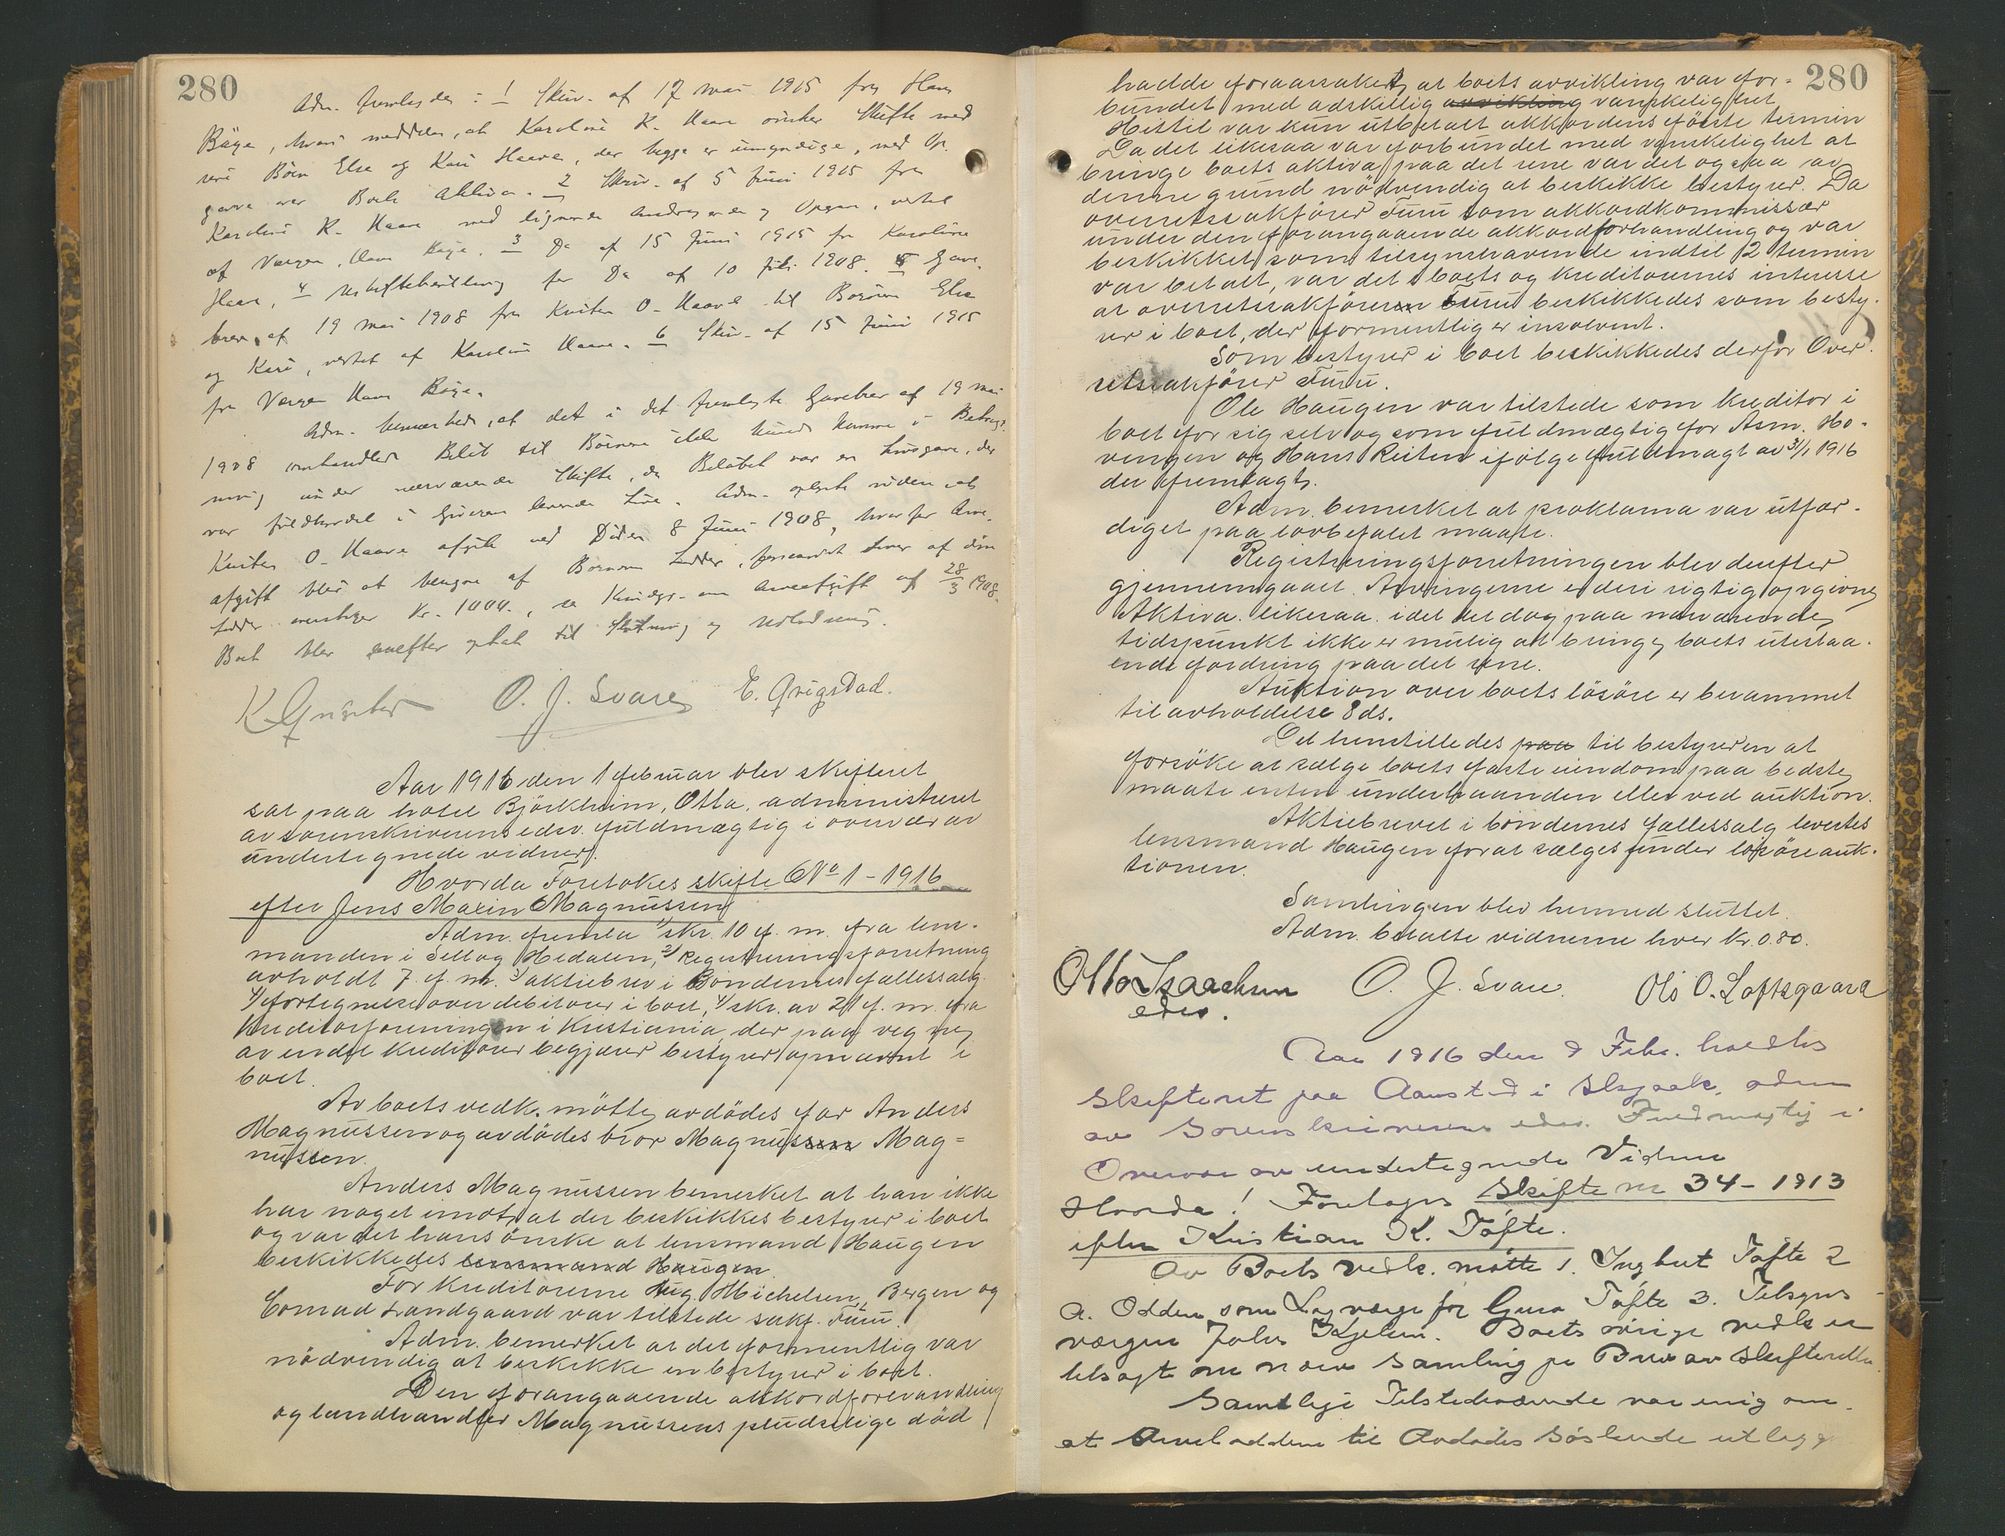 280
Adm. fremlagdes: 1 Skriv. af 17 mai 1915 fra Hans
Böye, hvori meddeles, at Karoline K. Haave önsker Skifte med
sine Börn Else og Kari Haave, der begge er umyndige, med Op-
gave over Boets Aktiva. 2 Skriv. af 5 Juni 1915 fra
Karoline K. Haave med lignende Andragende og Opgave, vertet
af Værgen, Hans Böye. 3 Do af 15 Juni 1915 fra Karoline
Haave, 4 Uskiftebevilling for Do af 10 Juli 1908. 5 Gave-
brev af 19 mai 1908 fra Kristen O. Haave til Börnene Else
og Kari, vertet af Karoline Haave. 6 Skriv. af 15 Juni 1915
fra Værgen Hans Böye.
Adm. bemærkede, at det i det fremlagte Gavebrev af 19 mai
1908 omhandlede Belöb til Börnene ikke kunde komme i Betragt-
ning under nærværende Skifte, da Belöbet var en Livsgave, der
var fuldbyrdet i Giveren levende Live. Adm. oplyste videre, at
Kristen O. Haave afgik ved Döden 8 Juni 1908, hvorfor Arve-
afgift blir at beregne af Börnenes Lodder, forsaavidt hver af disse
Lodder overstiger Kr. 1000., se Kundgj. om Arveafgift af 28/3 1908.
Boet blev derefter optat til Slutning og Udlodning.
O. J. Svare E. Qvigstad.
Aar 1916 den 1 februar blev skifteret
sat paa hotel Björkheim, Otta, administreret
av sorenskriverens edsv. fuldmægtig i overvær av
undertegnede vidner.
Hvorda Foretokes skifte No 1 - 1916
efter Jens Marin Magnussen
Adm. fremla 1/ skr. 10 f. m. fra lens-
manden i Sell og Hedalen, 2/ Registreringsforretning
avholdt 7 f. m. 3/ aktiebrev i Bondernes fællessalg
4/ fortegnelse over debitorer i boet, 4/ skr. av 21 f. m. fra
kreditorforeningen i Kristiania, der paa vegne
av endel kreditorer begjærer bestyrer opnævnt i
boet.
Av boets vedk. mötte avdödes far Anders
Magnussen og avdödes bror Magnussen Mag=
nussen.
Anders Magnussen bemerket at han ikke
har noget imot, at der beskikkes bestyrer i boet
og var det hans önske at lensmand Haugen
beskikkedes lensmand Haugen.
For kreditorerne Aug. Michelsen, Bergen og
Conrad Landgaard var tilstede sakf. Furu.
Adm. bemerket at det formentlig var
nödvendig at beskikke en bestyrer i boet.
Den forangaaende akkordforhandling
og landhandler Magnussens pludselige död
280
hadde foraarsaket, at boets avvikling var for-
bundet med adskillig avvikling vanskelighet.
Hittil var kun utbetalt akkordens förste termin
Da det likesaa var forbundet med vanskelighet at
bringe boets aktiva paa det rene var det ogsaa av
denne grund nödvendig at beskikke bestyrer. Da
overretssakförer Furu som akkordkommissær
under den forangaaende akkordforhandling og var
beskikket som tilsynshavende indtil 2 termin
var betalt, var det i boets og kreditorernes interesse
at overretssakföreren Furu beskikkedes som besty-
rer i boet, der formentlig er insolvent.
Som bestyrer i boet beskikkedes derfor Over-
retssakförer Furu.
Ole Haugen var tilstede som kreditor i
boet for sig selv og som fuldmægtig for Asm. Ho-
vengen og Hans Reiten ifölge fuldmagt av 31/1 1916
der fremlagts.
Adm. bemerket at proklama var utfær-
diget paa lovbefalet maate.
Registreringsforretningen blev derefter
gjennemgaaet. Arvingerne er deri rigtig opgivne
Aktiva likesaa, idet det dog paa nærværende
tidspunkt ikke er mulig at bringe boets utestaa-
ende fordring paa det rene.
Auktion over boets lösöre er berammet
til avholdelse 8 ds.
Det henstilledes paa til bestyreren at
forsöke at sælge boets faste eiendom paa bedste
maate enten underhaanden eller ved auktion.
Aktiebrevet i bondernes fællessalg levertes
lensmand Haugen for at sælges under lösöreauk-
tionen.
Samlingen blev hermed sluttet.
Adm. betalte vidnerne hver kr. 0.80.
Otto Isaachsen O. J. Svare. Ole O. Loftsgaard
edsv.
Aar 1916 den 9 Febr. holdtes
Skifteret paa Aanstad i Skjaak, adm
av Sorenskriverens edsv. Fuldmægtig i
Overvær av undertegnede Vidner
Hvorda! Foretoges Skifte nr 34 - 1913
efter Kristian K. Töfte.
Av Boets vedk. mötte 1. Ingbert Töfte 2
A. Odden som Lagværge for Guro Töfte 3. Tilsyns-
værgen Johs Kjelen. Boets övrige vedk er
tilsagt om nærv Samling pr Brev av Skifteretten.
Samtlige Tilstedeværende var enig om
at Arveloddene til Avdödes Söskende utlægg